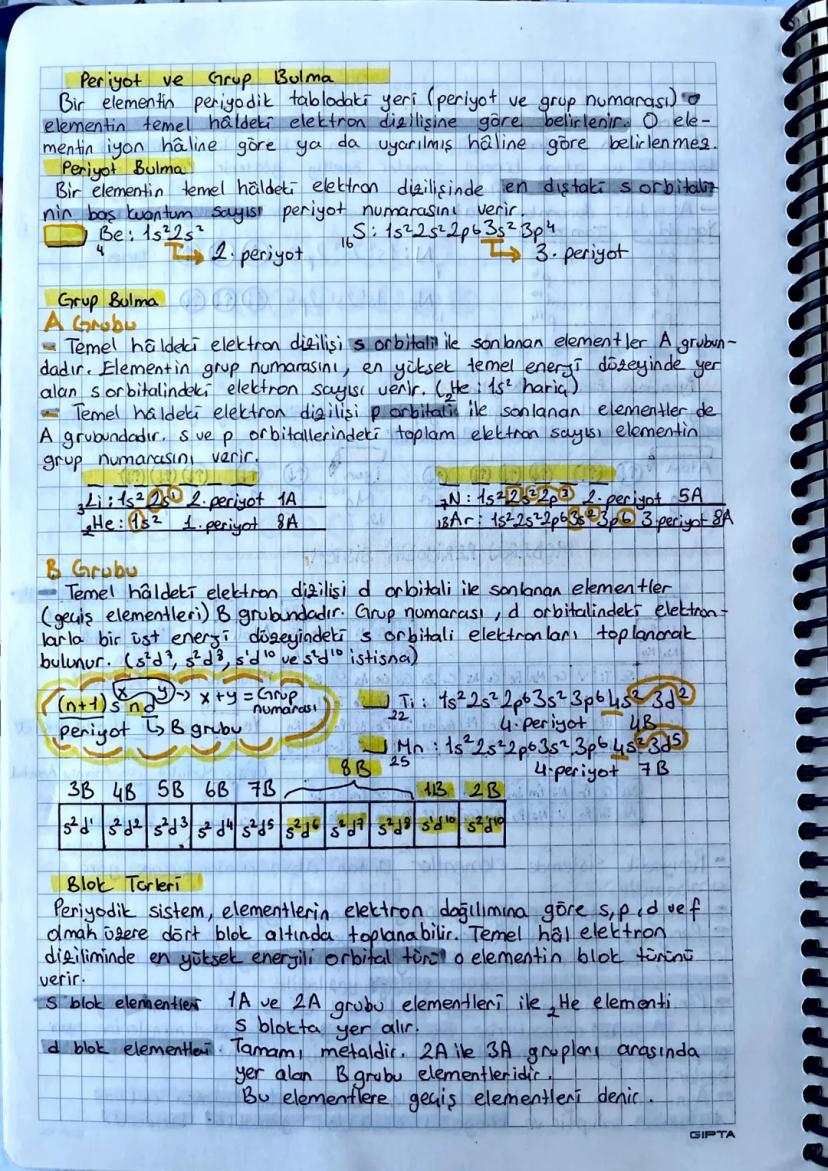 Periyot ve Grup Bulma
Bir elementin periyodik tablodaki yeri (periyot ve grup numarası) o
elementin temel hâldeki elektron dizilişine göre belirlenir. O ele-
mentin iyon hâline göre ya da uyarılmış hâline göre belirlenmez.
Periyot Bulma
Bir elementin temel hâldeki elektron dizilişinde en dıştaki s orbitali-
nin baş kuantum sayısı periyot numarasını verir.
₄Be: 1s²2s² ₁₆S: 1s²2s²2p⁶3s²3p⁴
→ 2. periyot → 3. periyot
Grup Bulma
A Grubu
- Temel hâldeki elektron dizilişi s orbitali ile sonlanan elementler A grubun-
dadır. Elementin grup numarasını, en yüksek temel enerji düzeyinde yer
alan s orbitalindeki elektron sayısı verir. (₂He: 1s² hariç)
- Temel hâldeki elektron dizilişi p orbitali ile sonlanan elementler de
A grubundadır. s ve p orbitallerindeki toplam elektron sayısı elementin
grup numarasını verir.
₃Li: 1s²2s¹ 2. periyot 1A ₇N: 1s²2s²2p³ 2. periyot 5A
₂He: 1s² 1. periyot 8A ₁₈Ar: 1s²2s²2p⁶3s²3p⁶ 3. periyot 8A
B Grubu
- Temel hâldeki elektron dizilişi d orbitali ile sonlanan elementler
(geçiş elementleri) B grubundadır. Grup numarası, d orbitalindeki elektron-
larla bir üst enerji düzeyindeki s orbitali elektronları toplanarak
bulunur. (s²d⁷, s²d⁸, s¹d¹⁰ ve s²d¹⁰ istisna)
(n+1)sˣ ndʸ → x+y = Grup numarası
periyot ↳ B grubu
₂₂Ti: 1s²2s²2p⁶3s²3p⁶4s²3d²
4. periyot 4B
₂₅Mn: 1s²2s²2p⁶3s²3p⁶4s²3d⁵
4. periyot 7B
8B
3B 4B 5B 6B 7B 1B 2B
s²d¹ s²d² s²d³ s²d⁴ s²d⁵ s²d⁶ s²d⁷ s²d⁸ s¹d¹⁰ s²d¹⁰
Blok Türleri
Periyodik sistem, elementlerin elektron dağılımına göre s, p, d ve f
olmak üzere dört blok altında toplanabilir. Temel hâl elektron
diziliminde en yüksek enerjili orbital türü o elementin blok türünü
verir.
s blok elementleri 1A ve 2A grubu elementleri ile ₂He elementi
s blokta yer alır.
d blok elementleri Tamamı metaldir. 2A ile 3A grupları arasında
yer alan B grubu elementleridir.
Bu elementlere geçiş elementleri denir.
GIPTA